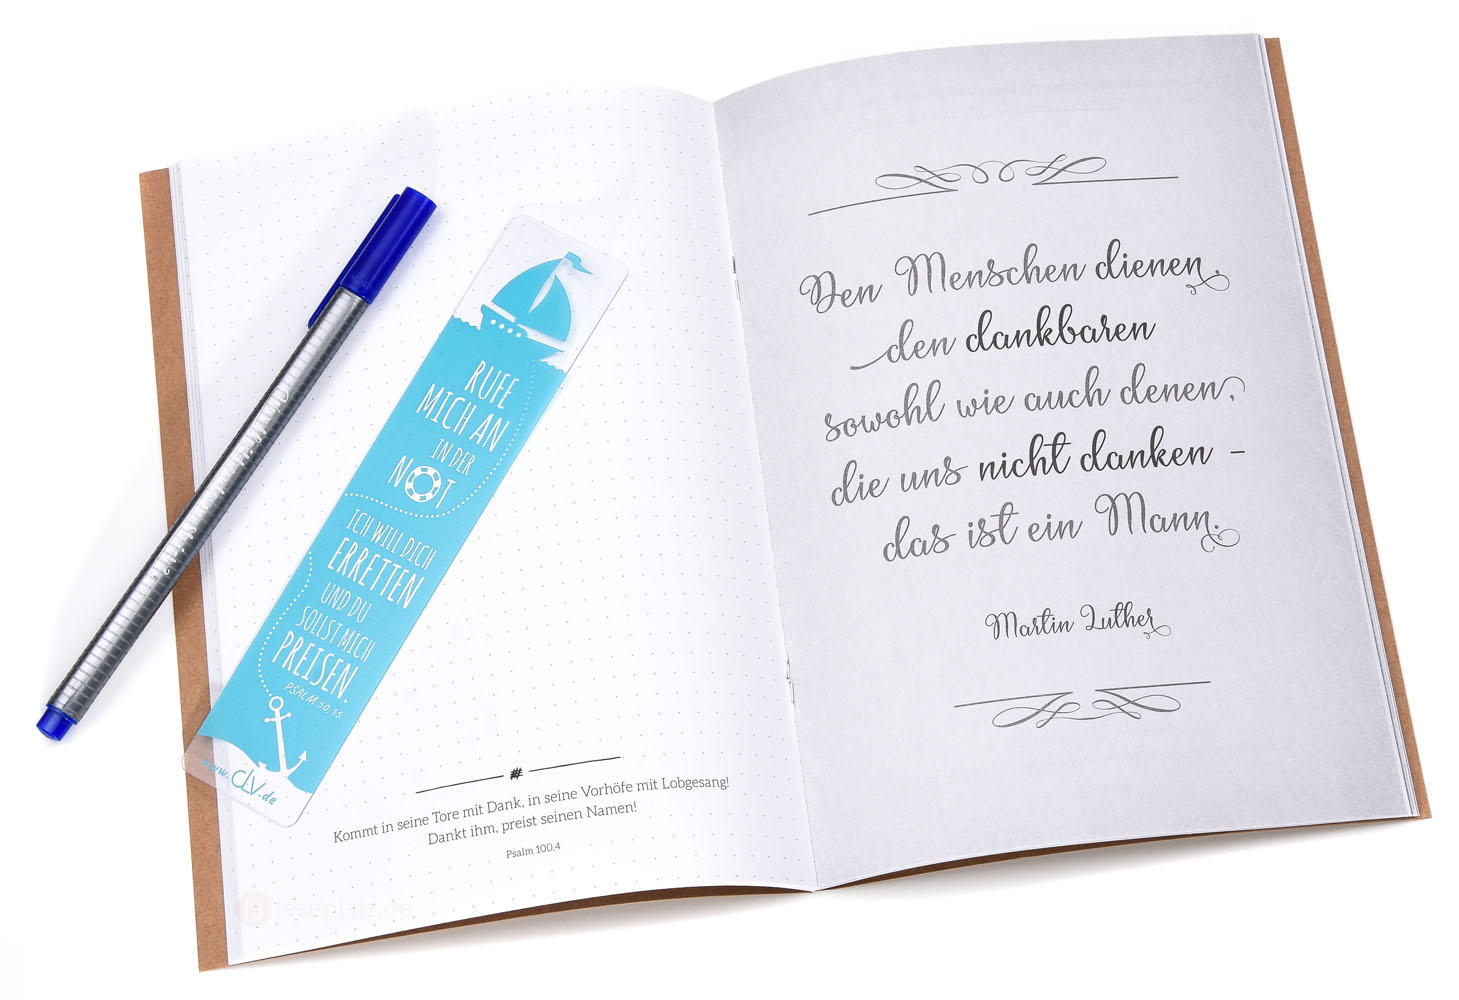 RUFE
MICH AN
IN DER
NOT
ICH WILL DICH
ERRETTEN
UND DU
SOLLST MICH
PREISEN.
PSALM 50,15
www.CLV.de
#
Kommt in seine Tore mit Dank, in seine Vorhöfe mit Lobgesang!
Dankt ihm, preist seinen Namen!
Psalm 100,4
leseplatz.de
Den Menschen dienen,
den dankbaren
sowohl wie auch denen,
die uns nicht danken –
das ist ein Mann.
Martin Luther